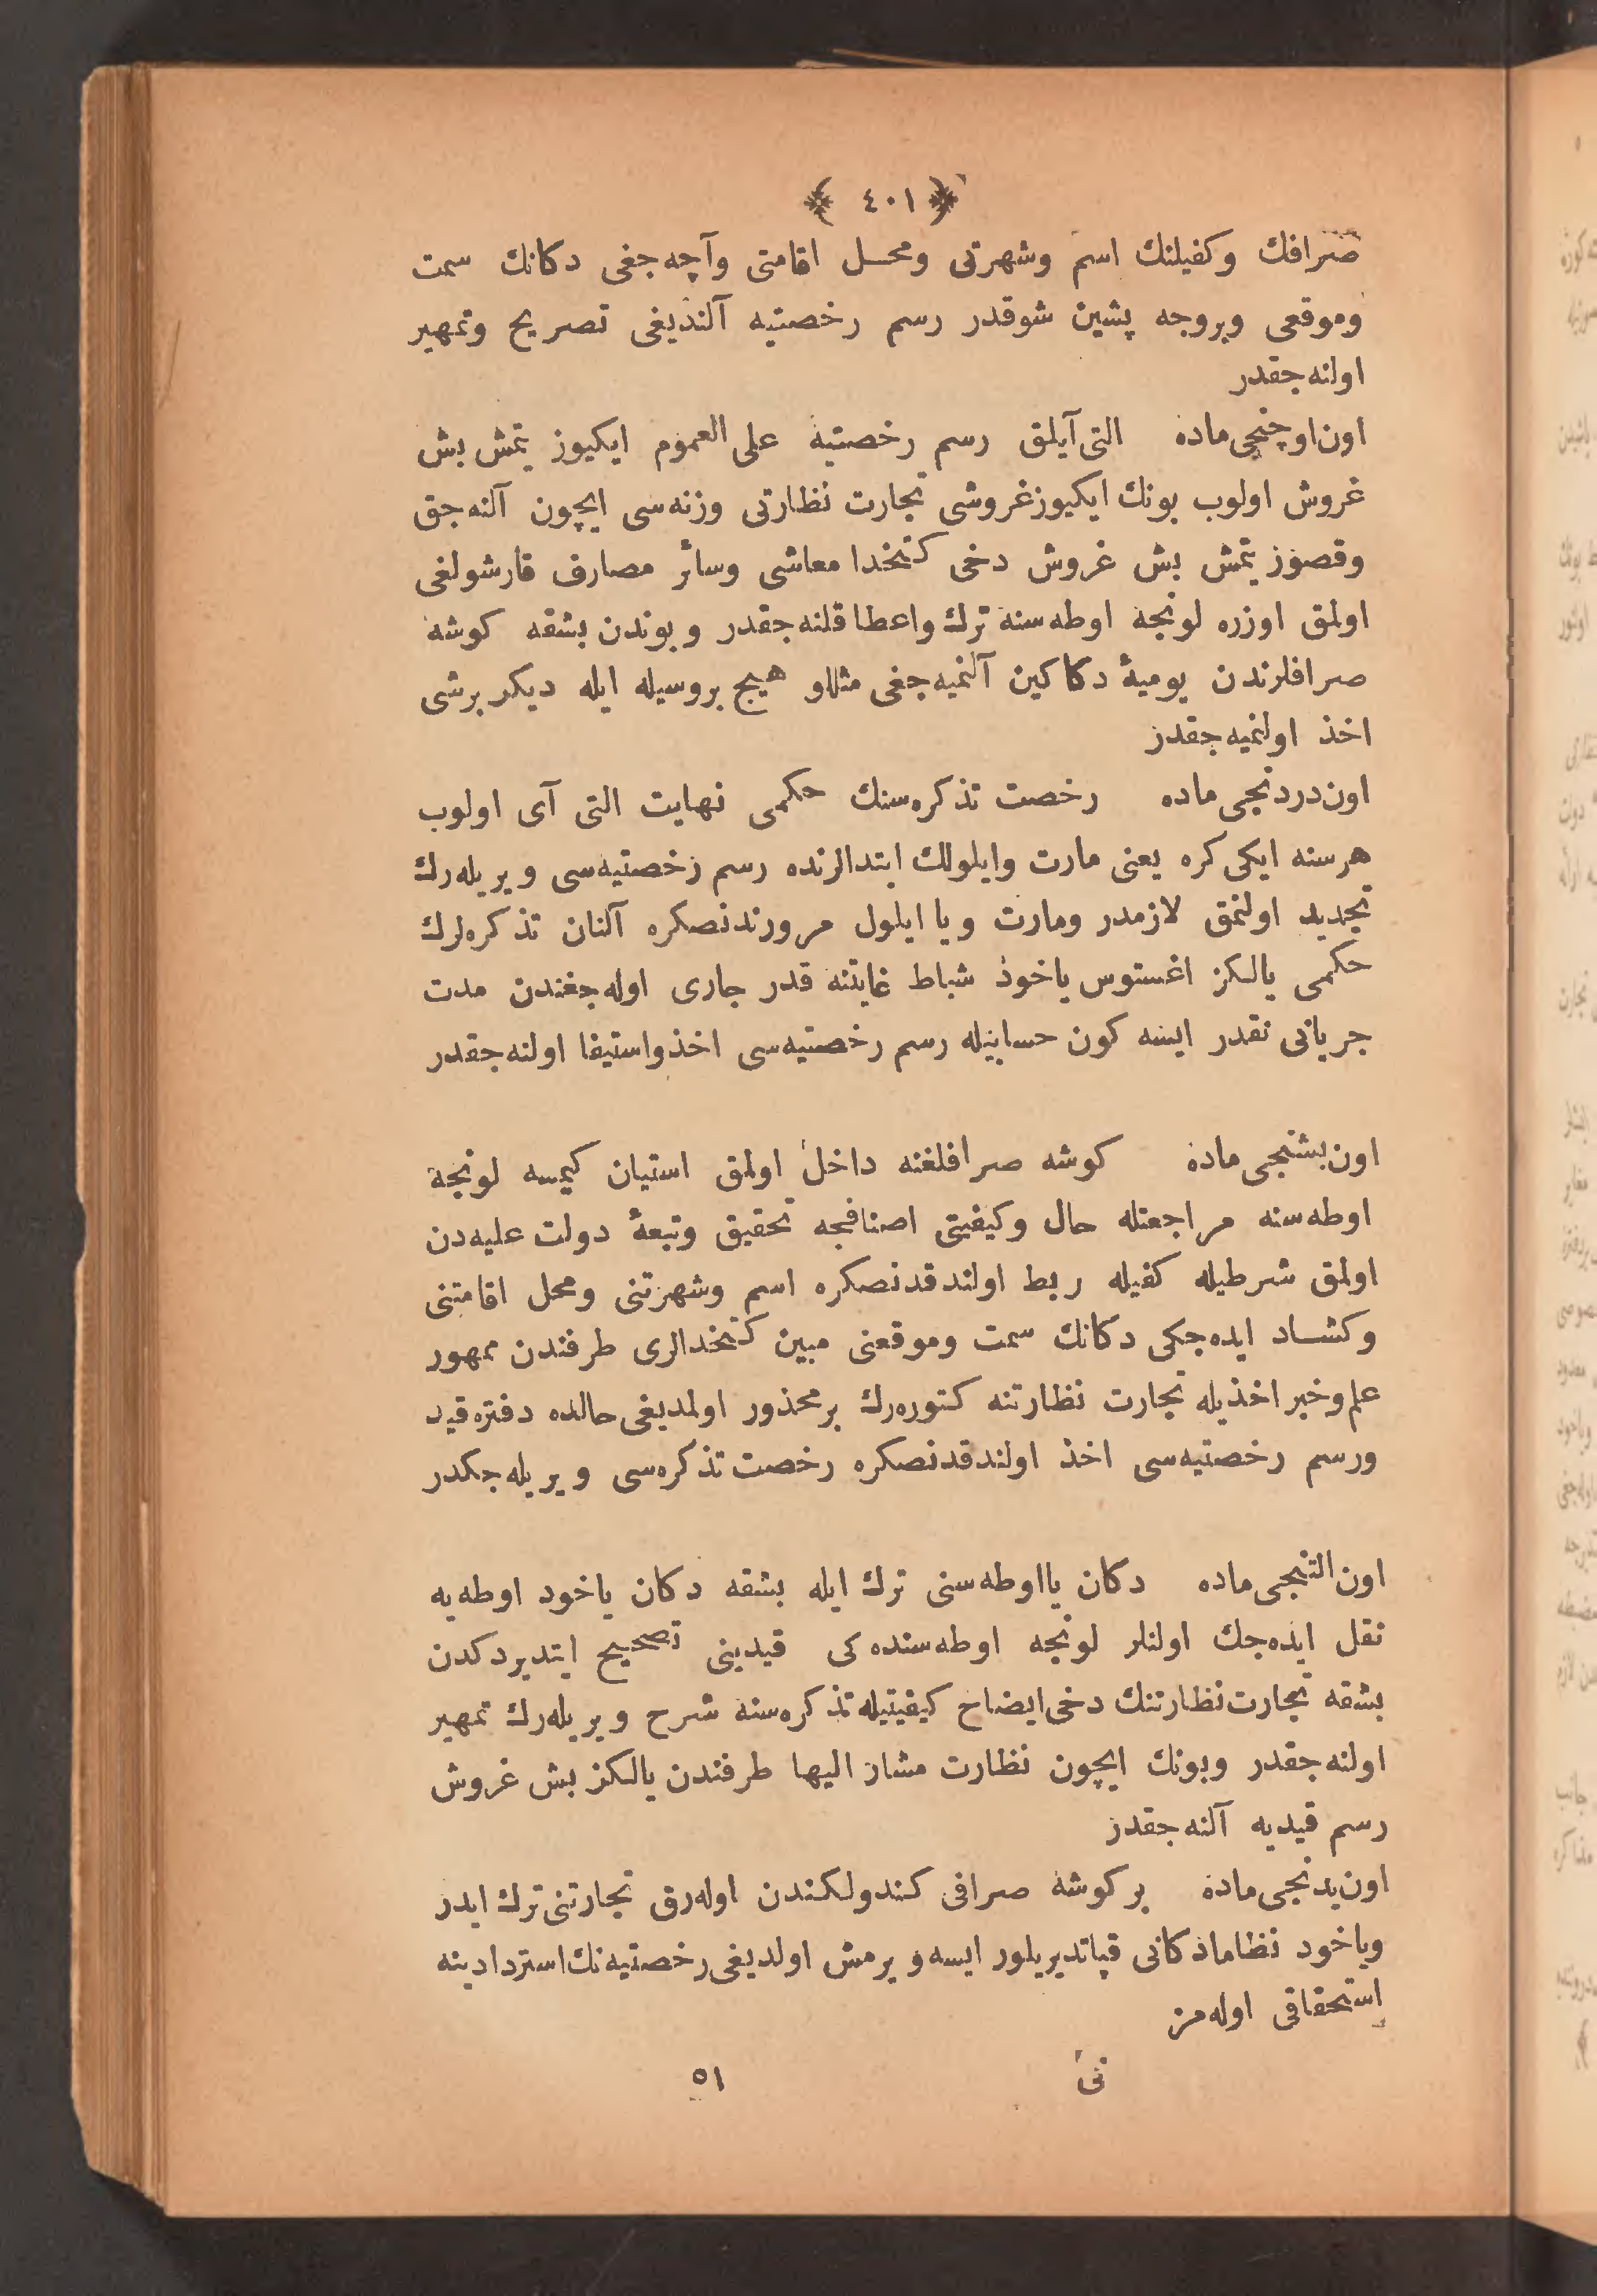 ﴿ ٤٠١ ﴾
صرافك وكفيلنك اسم وشهرتى ومحــل اقامتى وآچه‌جغى دكانك سمت
وموقعى وبروجه پشين شوقدر رسم رخصتيه آلنديغى تصريح وتمهير
اولنه‌جقدر
اون‌اوچنجى‌ماده التى‌آيلق رسم رخصتيه على‌العموم ايكيوز يتمش بش
غروش اولوب بونك ايكيوزغروشى تجارت نظارتى وزنه‌سى ايچون آلنه‌جق
وقصور يتمش بش غروش دخى كتخدا معاشى وسائر مصارف قارشولغى
اولمق اوزره لونجه اوطه‌سنه ترك واعطا قلنه‌جقدر وبوندن بشقه كوشه
صرافلرندن يوميۀ دكاكين آلنميه‌جغى مثللو هيچ بروسيله ايله ديكر برشى
اخذ اولنميه‌جقدر
اون‌دردنجى‌ماده رخصت تذكره‌سنك حكمى نهايت التى آى اولوب
هرسنه ايكى كره يعنى مارت وايلولك ابتدالرنده رسم رخصتيه‌سى ويريله‌رك
تجديد اولنمق لازمدر ومارت ويا ايلول مرورندنصكره آلنان تذكره‌لرك
حكمى يالكز اغستوس ياخود شباط غايتنه قدر جارى اوله‌جغندن مدت
جريانى نقدر ايسه كون حسابيله رسم رخصتيه‌سى اخذواستيفا اولنه‌جقدر
اون‌بشنجى‌ماده كوشه صرافلغنه داخل اولمق استيان كيمسه لونجه
اوطه‌سنه مراجعتله حال وكيفيتى اصنافجه تحقيق وتبعۀ دولت عليه‌دن
اولمق شرطيله كفيله ربط اولندقدنصكره اسم وشهرتنى ومحل اقامتنى
وكشــاد ايده‌جكى دكانك سمت وموقعنى مبين كتخدالرى طرفندن ممهور
علم‌وخبر اخذيله تجارت نظارتنه كتوره‌رك برمحذور اولمديغى‌حالده دفتره‌قيد
ورسم رخصتيه‌سى اخذ اولندقدنصكره رخصت تذكره‌سى ويريله‌جكدر
اون‌التنجى‌ماده دكان يااوطه‌سنى ترك ايله بشقه دكان ياخود اوطه‌يه
نقل ايده‌جك اولنلر لونجه اوطه‌سنده‌كى قيدينى تصحيح ايتديردكدن
بشقه تجارت‌نظارتنك دخى‌ايضاح كيفيتيله تذكره‌سنه شرح ويريله‌رك تمهير
اولنه‌جقدر وبونك ايچون نظارت مشار اليها طرفندن يالكز بش غروش
رسم قيديه آلنه‌جقدر
اون‌يدنجى‌ماده بر كوشه صرافى كندولكندن اوله‌رق تجارتنى‌ترك ايدر
وياخود نظاما دكانى قپاتديريلور ايسه ويرمش اولديغى رخصتيه‌نك استردادينه
استحقاقى اوله‌مز
نى
٥١